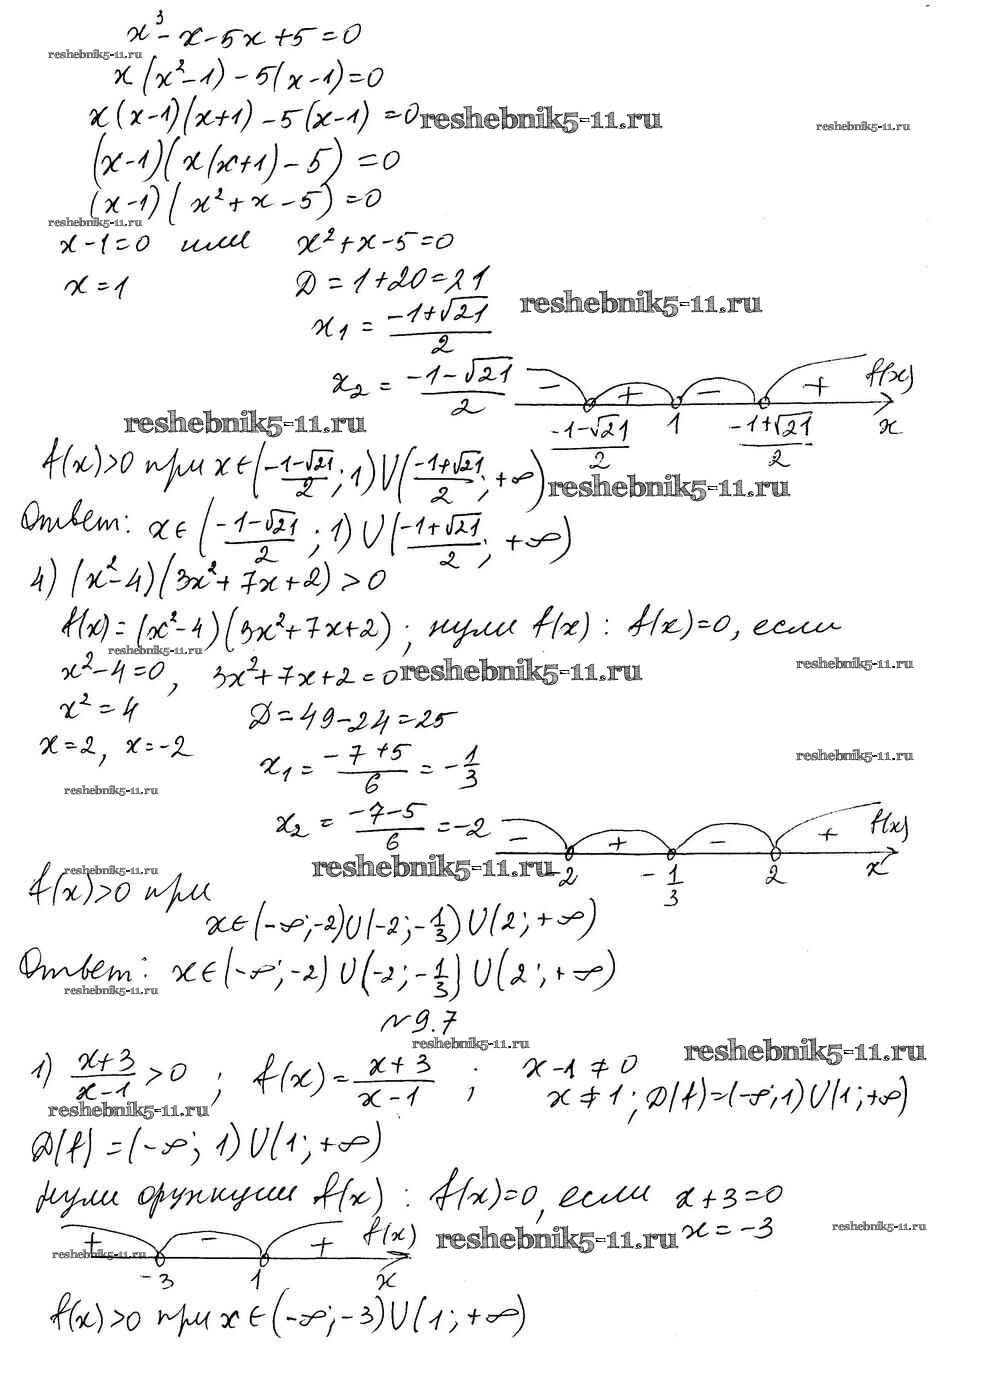 x³ - x - 5x + 5 = 0
reshebnik5-11.ru
x(x² - 1) - 5(x - 1) = 0
x(x-1)(x+1) - 5(x-1) = 0 reshebnik5-11.ru reshebnik5-11.ru
(x-1)(x(x+1) - 5) = 0
(x-1)(x² + x - 5) = 0
reshebnik5-11.ru
x - 1 = 0 или x² + x - 5 = 0
x = 1 D = 1 + 20 = 21
x₁ = (-1+√21)/2 reshebnik5-11.ru
x₂ = (-1-√21)/2 - + - + f(x)
(-1-√21)/2 1 (-1+√21)/2 x
reshebnik5-11.ru
f(x) > 0 при x ∈ ((-1-√21)/2; 1) U ((-1+√21)/2; +∞) reshebnik5-11.ru
Ответ: x ∈ ((-1-√21)/2; 1) U ((-1+√21)/2; +∞)
4) (x² - 4)(3x² + 7x + 2) > 0
f(x) = (x² - 4)(3x² + 7x + 2); нули f(x): f(x) = 0, если
reshebnik5-11.ru
x² - 4 = 0, 3x² + 7x + 2 = 0 reshebnik5-11.ru reshebnik5-11.ru
x² = 4 D = 49 - 24 = 25
x = 2, x = -2
x₁ = (-7+5)/6 = -1/3 reshebnik5-11.ru
reshebnik5-11.ru
x₂ = (-7-5)/6 = -2 - + - + f(x)
reshebnik5-11.ru reshebnik5-11.ru -2 -1/3 2 x
f(x) > 0 при
x ∈ (-∞; -2) U (-2; -1/3) U (2; +∞)
Ответ: x ∈ (-∞; -2) U (-2; -1/3) U (2; +∞)
reshebnik5-11.ru
N 9.7
reshebnik5-11.ru reshebnik5-11.ru
1) (x+3)/(x-1) > 0; f(x) = (x+3)/(x-1); x - 1 ≠ 0
reshebnik5-11.ru x ≠ 1; D(f) = (-∞; 1) U (1; +∞)
D(f) = (-∞; 1) U (1; +∞)
Нули функции f(x): f(x) = 0, если x + 3 = 0
+ - + f(x) reshebnik5-11.ru x = -3 reshebnik5-11.ru
reshebnik5-11.ru
-3 1 x
f(x) > 0 при x ∈ (-∞; -3) U (1; +∞)